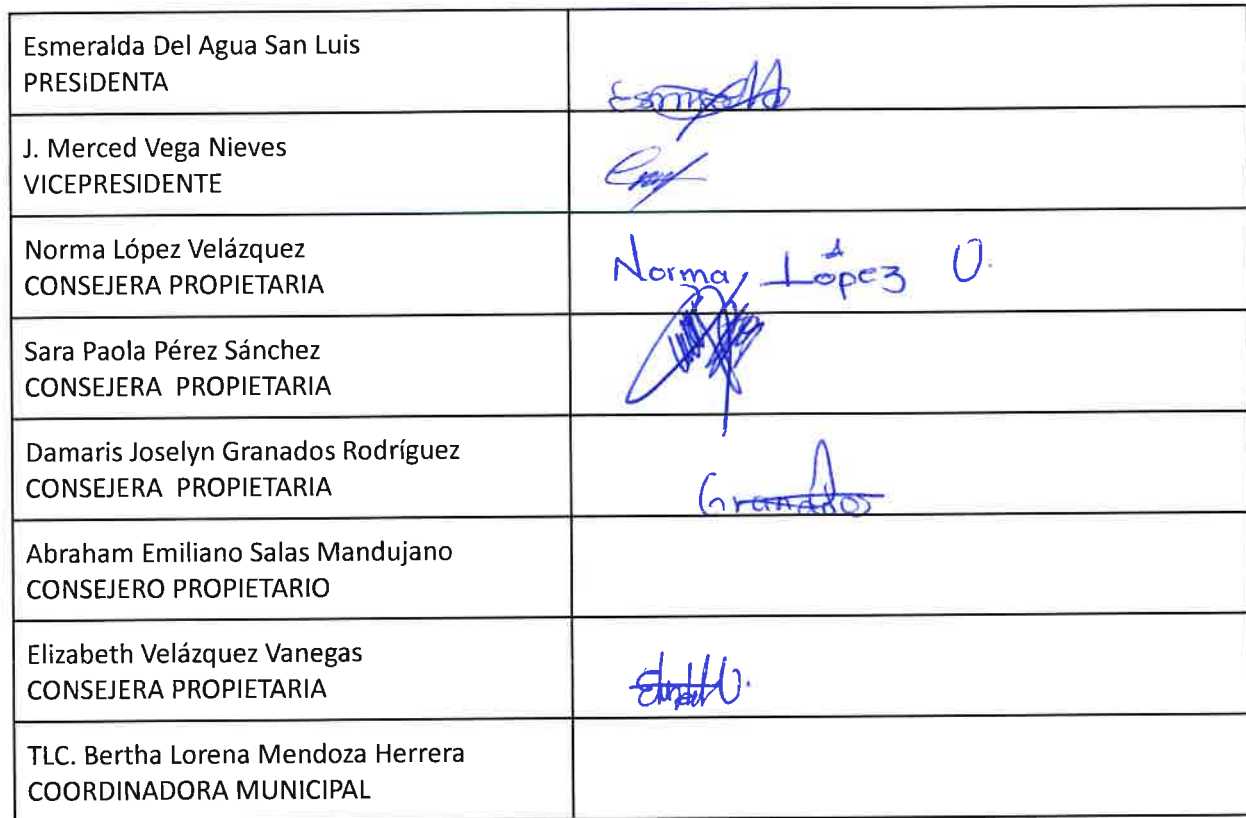 Esmeralda Del Agua San Luis
PRESIDENTA
J. Merced Vega Nieves
VICEPRESIDENTE
Norma López Velázquez
CONSEJERA PROPIETARIA
Norma López V.
Sara Paola Pérez Sánchez
CONSEJERA PROPIETARIA
Damaris Joselyn Granados Rodríguez
CONSEJERA PROPIETARIA
Granados
Abraham Emiliano Salas Mandujano
CONSEJERO PROPIETARIO
Elizabeth Velázquez Vanegas
CONSEJERA PROPIETARIA
TLC. Bertha Lorena Mendoza Herrera
COORDINADORA MUNICIPAL